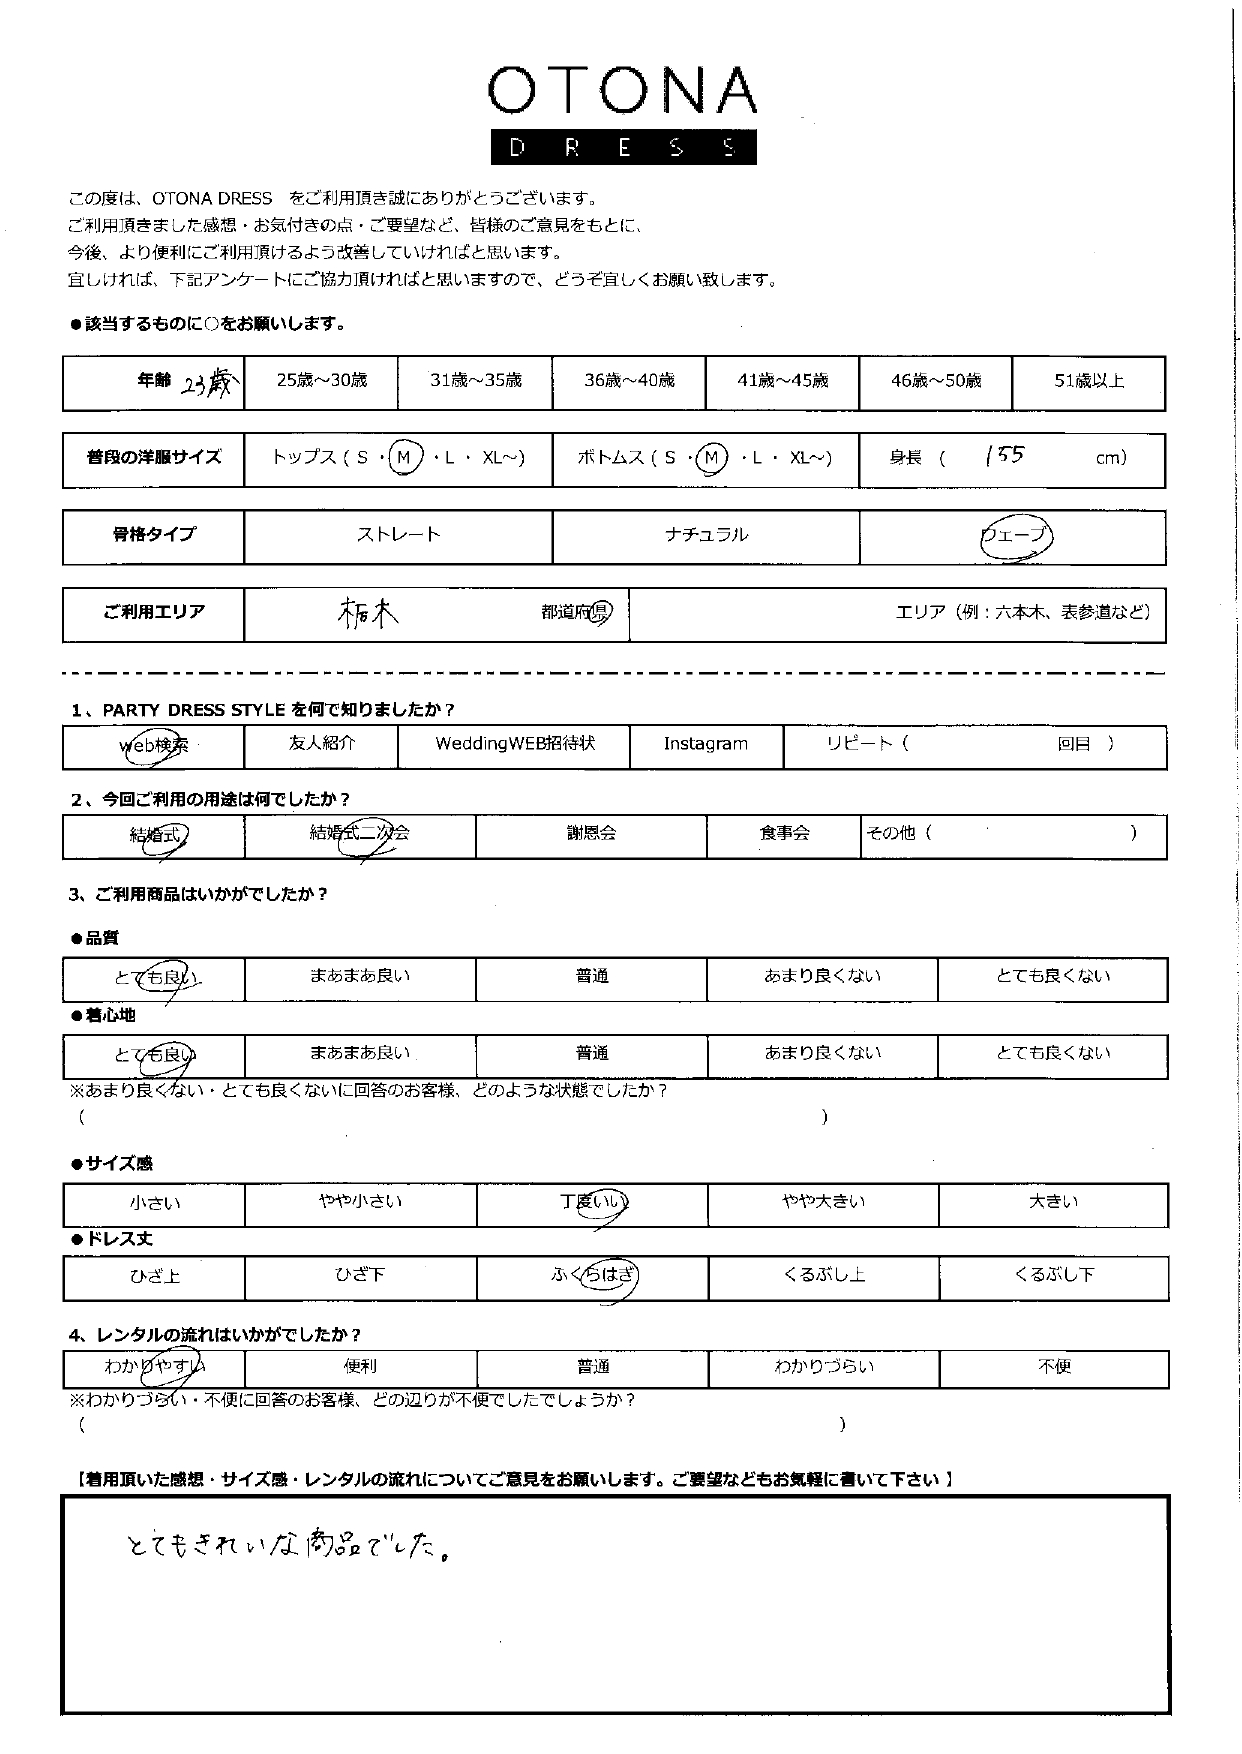 OTONA
DRESS
この度は、OTONA DRESS をご利用頂き誠にありがとうございます。
ご利用頂きました感想・お気付きの点・ご要望など、皆様のご意見をもとに、
今後、より便利にご利用頂けるよう改善していければと思います。
宜しければ、下記アンケートにご協力頂ければと思いますので、どうぞ宜しくお願い致します。
●該当するものに○をお願いします。
年齢 23歳 25歳～30歳 31歳～35歳 36歳～40歳 41歳～45歳 46歳～50歳 51歳以上
普段の洋服サイズ トップス ( S ・ M ・ L ・ XL～) ボトムス ( S ・ M ・ L ・ XL～) 身長 ( 155 cm)
骨格タイプ ストレート ナチュラル ウェーブ
ご利用エリア 栃木 都道府県 エリア（例：六本木、表参道など）
1、PARTY DRESS STYLE を何で知りましたか？
web検索 友人紹介 WeddingWEB招待状 Instagram リピート（ 回目 ）
2、今回ご利用の用途は何でしたか？
結婚式 結婚式二次会 謝恩会 食事会 その他（ ）
3、ご利用商品はいかがでしたか？
●品質
とても良い まあまあ良い 普通 あまり良くない とても良くない
●着心地
とても良い まあまあ良い 普通 あまり良くない とても良くない
※あまり良くない・とても良くないに回答のお客様、どのような状態でしたか？
（ ）
●サイズ感
小さい やや小さい 丁度いい やや大きい 大きい
●ドレス丈
ひざ上 ひざ下 ふくらはぎ くるぶし上 くるぶし下
4、レンタルの流れはいかがでしたか？
わかりやすい 便利 普通 わかりづらい 不便
※わかりづらい・不便に回答のお客様、どの辺りが不便でしたでしょうか？
（ ）
【着用頂いた感想・サイズ感・レンタルの流れについてご意見をお願いします。ご要望などもお気軽に書いて下さい】
とてもきれいな商品でした。